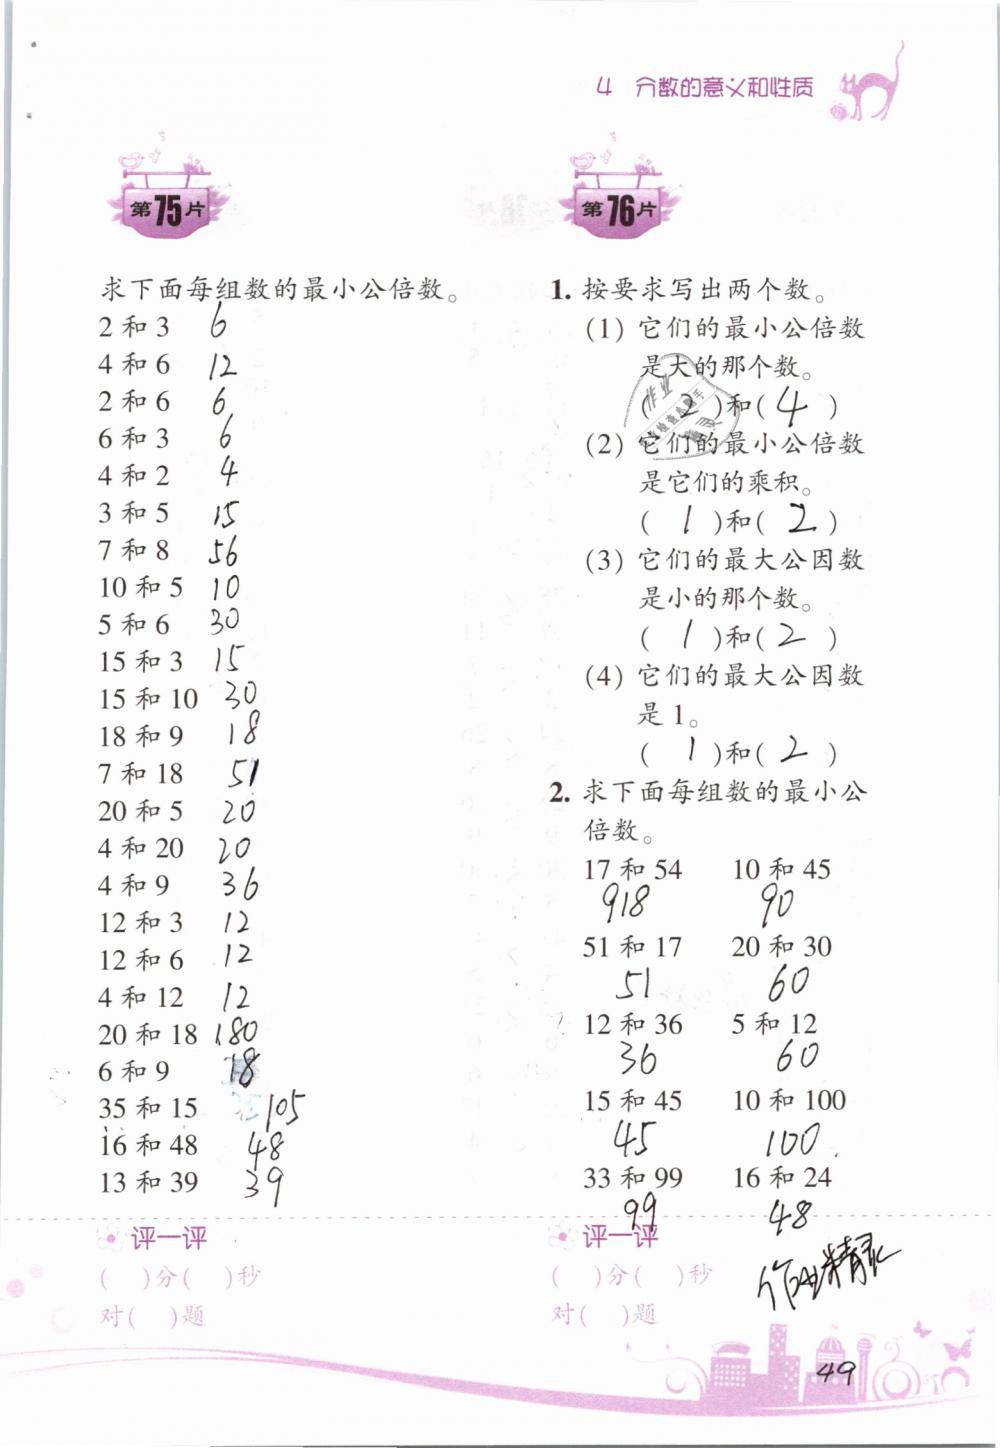 4 分数的意义和性质
第75片
求下面每组数的最小公倍数。
2 和 3 6
4 和 6 12
2 和 6 6
6 和 3 6
4 和 2 4
3 和 5 15
7 和 8 56
10 和 5 10
5 和 6 30
15 和 3 15
15 和 10 30
18 和 9 18
7 和 18 51
20 和 5 20
4 和 20 20
4 和 9 36
12 和 3 12
12 和 6 12
4 和 12 12
20 和 18 180
6 和 9 18
35 和 15 105
16 和 48 48
13 和 39 39
评一评
( )分( )秒
对( )题
第76片
1. 按要求写出两个数。
(1) 它们的最小公倍数
是大的那个数。
( 2 )和( 4 )
(2) 它们的最小公倍数
是它们的乘积。
( 1 )和( 2 )
(3) 它们的最大公因数
是小的那个数。
( 1 )和( 2 )
(4) 它们的最大公因数
是 1。
( 1 )和( 2 )
2. 求下面每组数的最小公
倍数。
17 和 54 10 和 45
918 90
51 和 17 20 和 30
51 60
12 和 36 5 和 12
36 60
15 和 45 10 和 100
45 100
33 和 99 16 和 24
99 48
评一评
( )分( )秒
对( )题
作业精灵
49